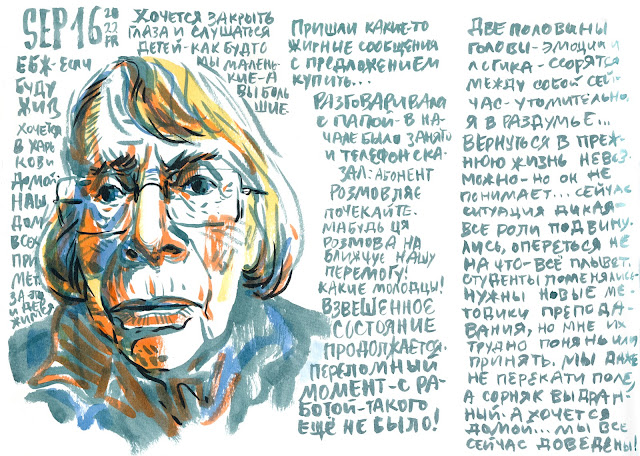 SEP 16 2022 FR
ЕБЖ-ЕСЛИ
БУДУ
ЖИВ
ХОЧЕТСЯ
В ХАРЬ
КОВИ
ДОМОЙ-
НАШ
ДОМ
ВСЕХ
ПРИ
МЕТ.
ЗА ЭТО
И ДЕЕТСЯ
ЖИТЬ
ХОЧЕТСЯ ЗАКРЫТЬ
ГЛАЗА И СЛУШАТСЯ
ДЕТЕЙ-КАК БУДТО
МЫ МАЛЕНЬ-
КИЕ-А
ВЫ БОЛЬ
ШИЕ.
ПРИШЛИ КАКИЕ-ТО
ЖИРНЫЕ СООБЩЕНИЯ
С ПРЕДЛОЖЕНИЕМ
КУПИТЬ...
РАЗГОВАРИВАЛА
С ПАПОЙ-В НА-
ЧАЛЕ БЫЛО ЗАНЯТО
И ТЕЛЕФОН СКА-
ЗАЛ: АБОНЕНТ
РОЗМОВЛЯЄ
ПОЧЕКАЙТЕ.
МАБУДЬ ЦЯ
РОЗМОВА НА
БЛИЖЧУЄ НАШУ
ПЕРЕМОГУ!
КАКИЕ МОЛОДЦЫ!
ВЗВЕШЕННОЕ
СОСТОЯНИЕ
ПРОДОЛЖАЕТСЯ.
ПЕРЕЛОМНЫЙ
МОМЕНТ-С РА-
БОТОЙ-ТАКОГО
ЕЩЁ НЕ БЫЛО!
ДВЕ ПОЛОВИНЫ
ГОЛОВЫ-ЭМОЦИЯ И
ЛОГИКА-ССОРЯТСЯ
МЕЖДУ СОБОЙ СЕЙ-
ЧАС-УТОМИТЕЛЬНО,
Я В РАЗДУМЬЕ...
ВЕРНУТЬСЯ В ПРЕЖ-
НЮЮ ЖИЗНЬ НЕВОЗ-
МОЖНО-НО ОН НЕ
ПОНИМАЕТ... СЕЙЧАС
СИТУАЦИЯ ДИКАЯ-
ВСЕ РОЛИ ПОДВИНУ-
ЛИСЬ, ОПЕРЕТЬСЯ НЕ
НА ЧТО-ВСЁ ПЛЫВЕТ.
СТУДЕНТЫ ПОМЕНЯЛИСЬ-
НУЖНЫ НОВЫЕ МЕ-
ТОДИКИ ПРЕПОДА-
ВАНИЯ, НО МНЕ ИХ
ТРУДНО ПОНЯТЬ ИЛИ
ПРИНЯТЬ. МЫ ДАЖЕ
НЕ ПЕРЕКАТИ ПОЛЕ,
А СОРНЯК ВЫДРАН-
НЫЙ. А ХОЧЕТСЯ
ДОМОЙ... МЫ ВСЕ
СЕЙЧАС ДОВЕДЕНЫ!